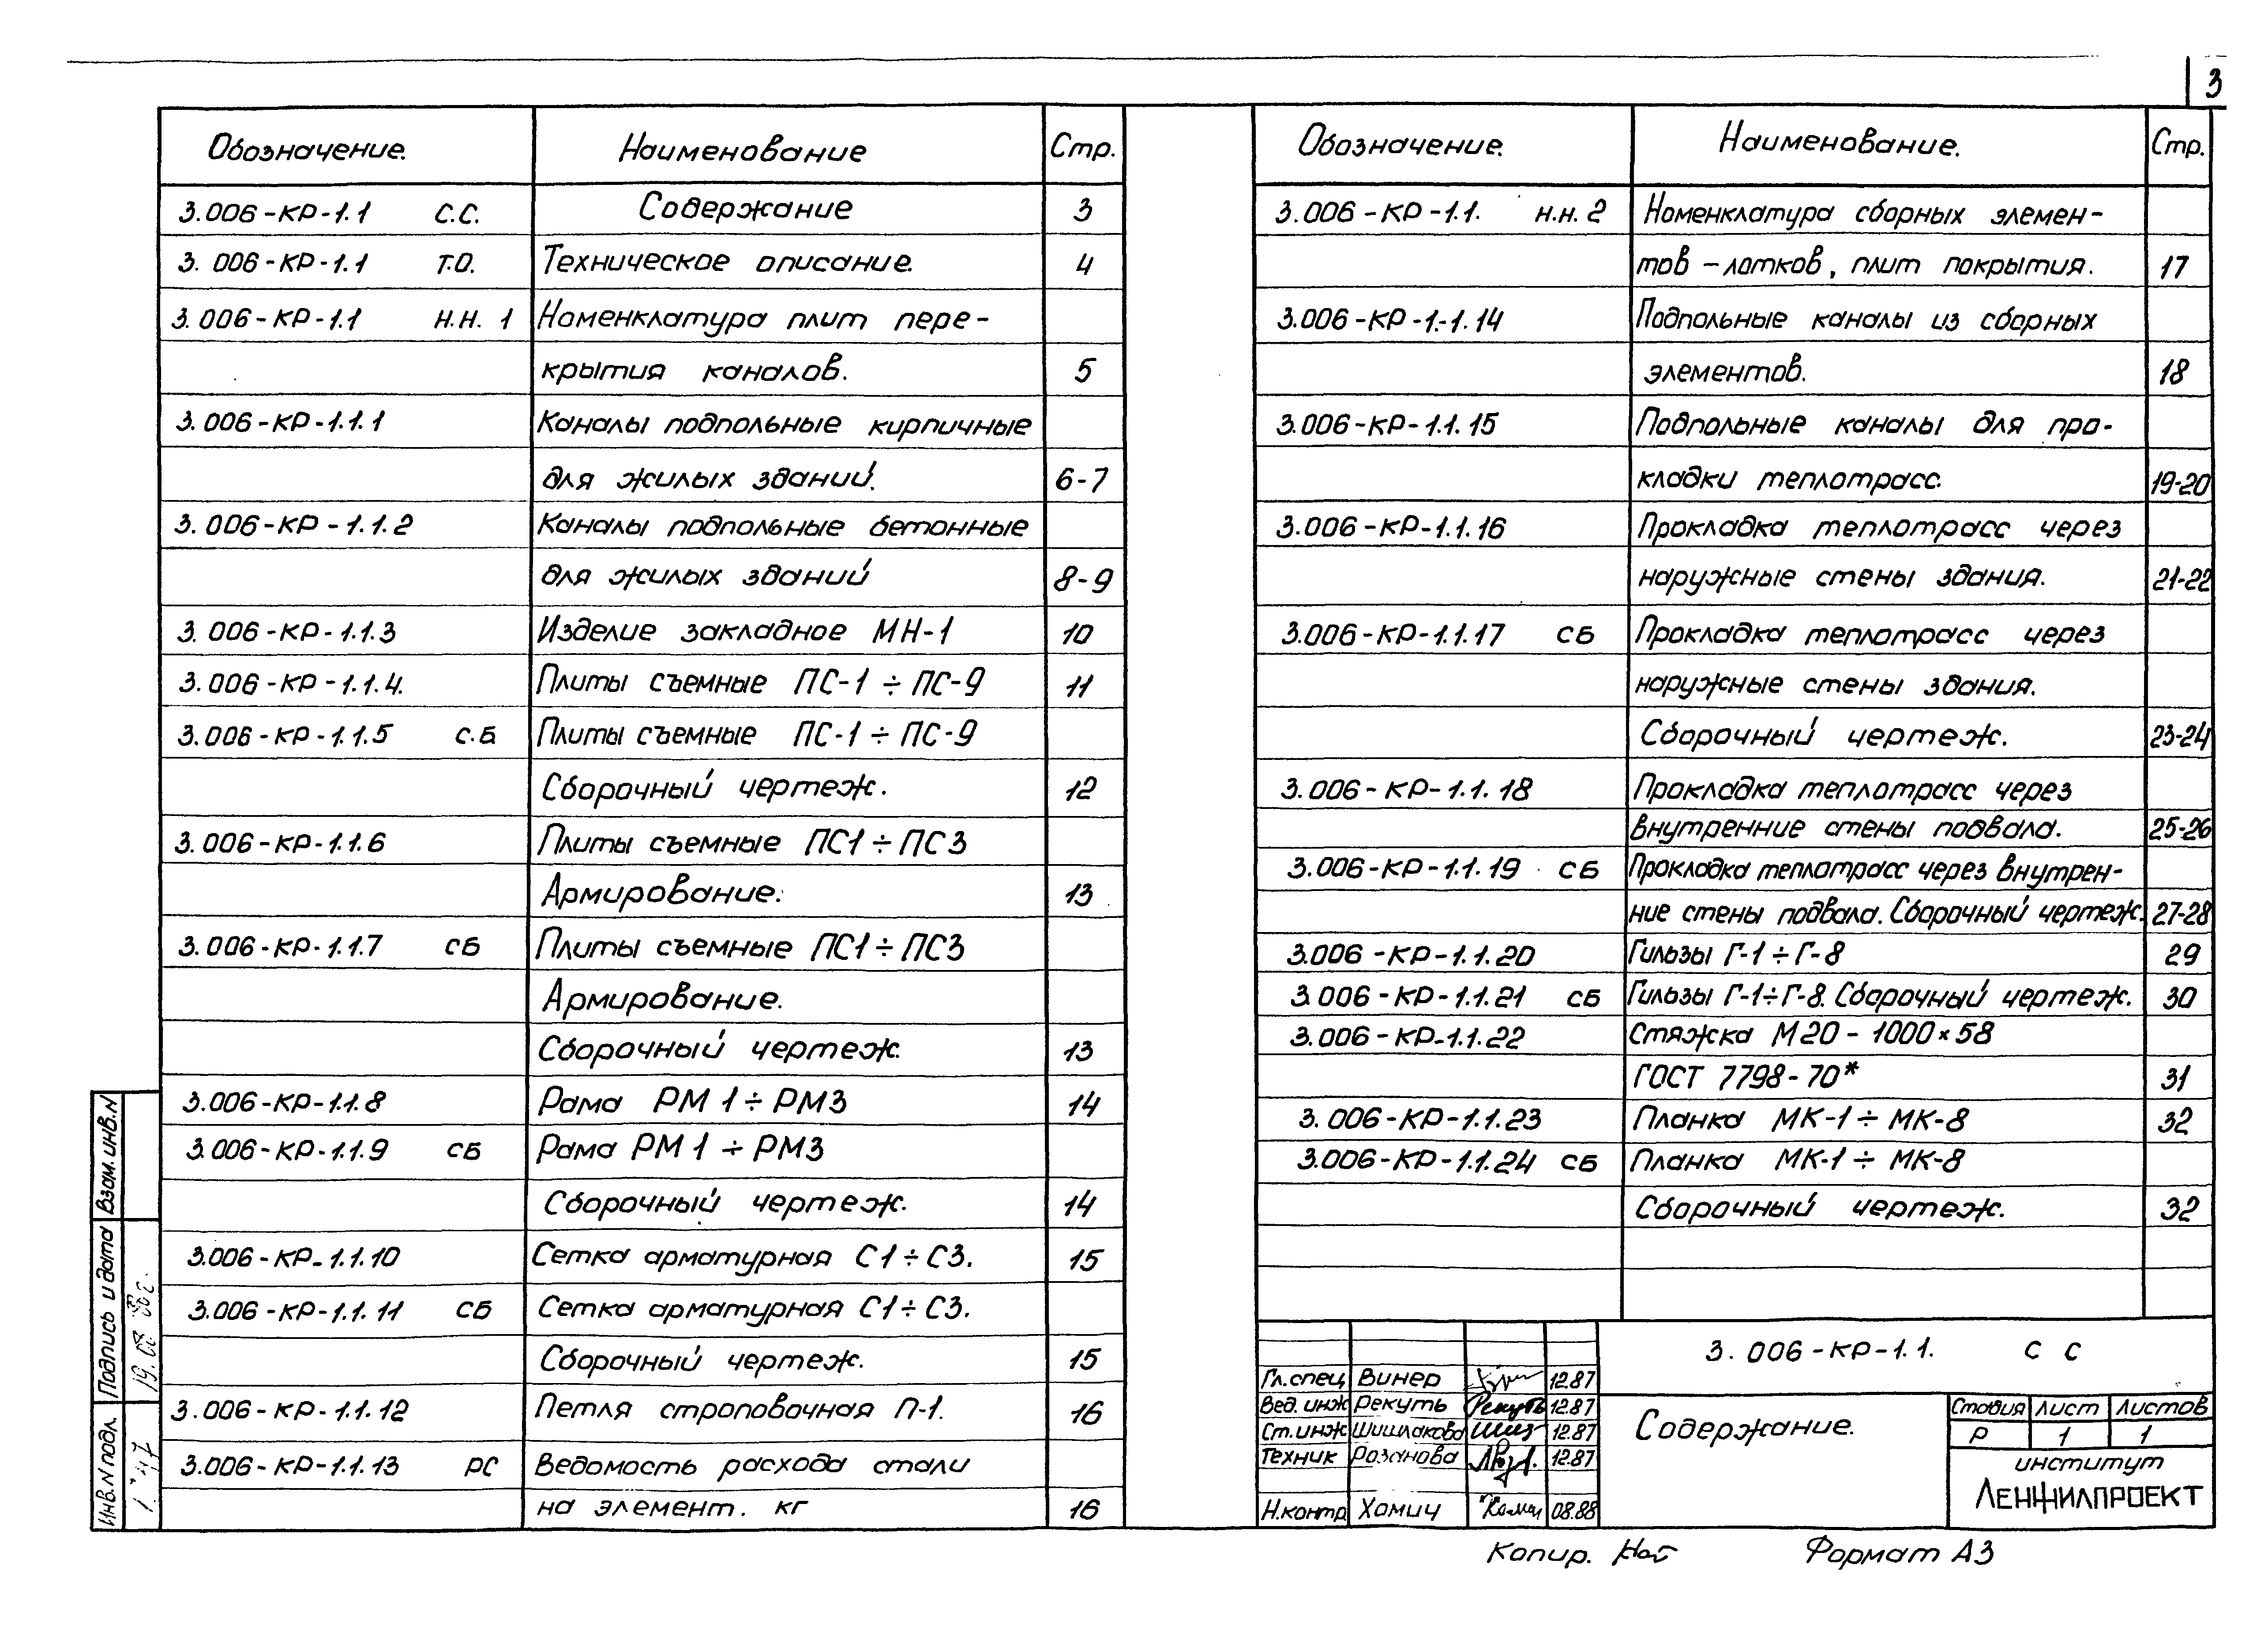 3
Обозначение. Наименование Стр.
3.006-КР-1.1 С.С. Содержание 3
3.006-КР-1.1 Т.О. Техническое описание. 4
3.006-КР-1.1 Н.Н. 1 Номенклатура плит пере-
крытия каналов. 5
3.006-КР-1.1.1 Каналы подпольные кирпичные
для жилых зданий. 6-7
3.006-КР-1.1.2 Каналы подпольные бетонные
для жилых зданий 8-9
3.006-КР-1.1.3 Изделие закладное МН-1 10
3.006-КР-1.1.4. Плиты съемные ПС-1 ÷ ПС-9 11
3.006-КР-1.1.5 С.Б Плиты съемные ПС-1 ÷ ПС-9
Сборочный чертеж. 12
3.006-КР-1.1.6 Плиты съемные ПС1 ÷ ПС3
Армирование. 13
3.006-КР-1.1.7 СБ Плиты съемные ПС1 ÷ ПС3
Армирование.
Сборочный чертеж. 13
3.006-КР-1.1.8 Рама РМ 1 ÷ РМ3 14
3.006-КР-1.1.9 СБ Рама РМ 1 ÷ РМ3
Сборочный чертеж. 14
3.006-КР-1.1.10 Сетка арматурная С1 ÷ С3. 15
3.006-КР-1.1.11 СБ Сетка арматурная С1 ÷ С3.
Сборочный чертеж. 15
3.006-КР-1.1.12 Петля строповочная П-1. 16
3.006-КР-1.1.13 РС Ведомость расхода стали
на элемент. кг 16
Обозначение. Наименование. Стр.
3.006-КР-1.1. Н.Н. 2 Номенклатура сборных элемен-
тов - лотков, плит покрытия. 17
3.006-КР-1.1.14 Подпольные каналы из сборных
элементов. 18
3.006-КР-1.1.15 Подпольные каналы для про-
кладки теплотрасс. 19-20
3.006-КР-1.1.16 Прокладка теплотрасс через
наружные стены здания. 21-22
3.006-КР-1.1.17 СБ Прокладка теплотрасс через
наружные стены здания.
Сборочный чертеж. 23-24
3.006-КР-1.1.18 Прокладка теплотрасс через
внутренние стены подвала. 25-26
3.006-КР-1.1.19 СБ Прокладка теплотрасс через внутрен-
ние стены подвала. Сборочный чертеж. 27-28
3.006-КР-1.1.20 Гильзы Г-1 ÷ Г-8 29
3.006-КР-1.1.21 СБ Гильзы Г-1÷Г-8. Сборочный чертеж. 30
3.006-КР-1.1.22 Стяжка М20 - 1000×58
ГОСТ 7798-70* 31
3.006-КР-1.1.23 Планка МК-1 ÷ МК-8 32
3.006-КР-1.1.24 СБ Планка МК-1 ÷ МК-8
Сборочный чертеж. 32
3.006-КР-1.1. С С
Гл.спец Винер 12.87
Вед. инж Рекуть Рекуть 12.87
Ст.инж Шишлакова 12.87
Техник Розанова 12.87
Н.контр Хомич 08.88
Содержание.
Стадия Лист Листов
Р 1 1
институт
ЛЕНЖИЛПРОЕКТ
Копир. Формат А3
Взам. инв. N
Подпись и дата
Инв. N подл.